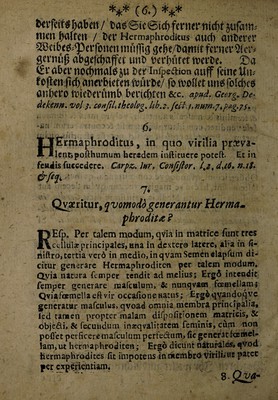 *** (6.) ***
derseits haben / das Sie Sich ferner nicht zusam-
men halten / der Hermaphroditus auch anderer
Weibes-Personen müssig gehe / damit ferner Aer-
gernüß abgeschaffet und verhütet werde. Da
Er aber nochmals zu der Inspection auff seine Un-
kosten sich anerbieten würde / so wollet uns solches
anhero wiederumb berichten &c. apud. Georg. De-
dekenn. vol 3. consil. theolog. lib. 2. sect 1. num. 7, pag. 75.
6.
Hermaphroditus, in quo virilia præva-
lent, posthumum heredem instituere potest. Et in
feudis succedere. Carpz. Iur. Consistor. l. 2. d. 16. n. 18.
& seq.
7.
Qværitur, qvomodò generantur Herma-
phroditæ?
REsp. Per talem modum, qvia in matrice sunt tres
cellulæ principales, una in dextero latere, alia in si-
nistro, tertia verò in medio, in qvam Semen elapsum di-
citur generare Hermaphroditen per talem modum.
Qvia natura semper tendit ad melius; Ergò intendit
semper generare masculum, & nunqvam fœmellam;
Qvia fœmella est vir occasione natus; Ergò qvandoqve
generatur masculus, qvoad omnia membra principalia,
sed tamen propter malam dispositionem matricis, &
objecti, & secundum inæqvalitatem seminis, cùm non
posset perficere masculum perfectum, sic generat fœmel-
lam, ut hermaphroditen; Ergò dicunt naturales, qvod
hermaphrodites sit impotens in membro virili, ut patet
per experientiam.
8. Qva-